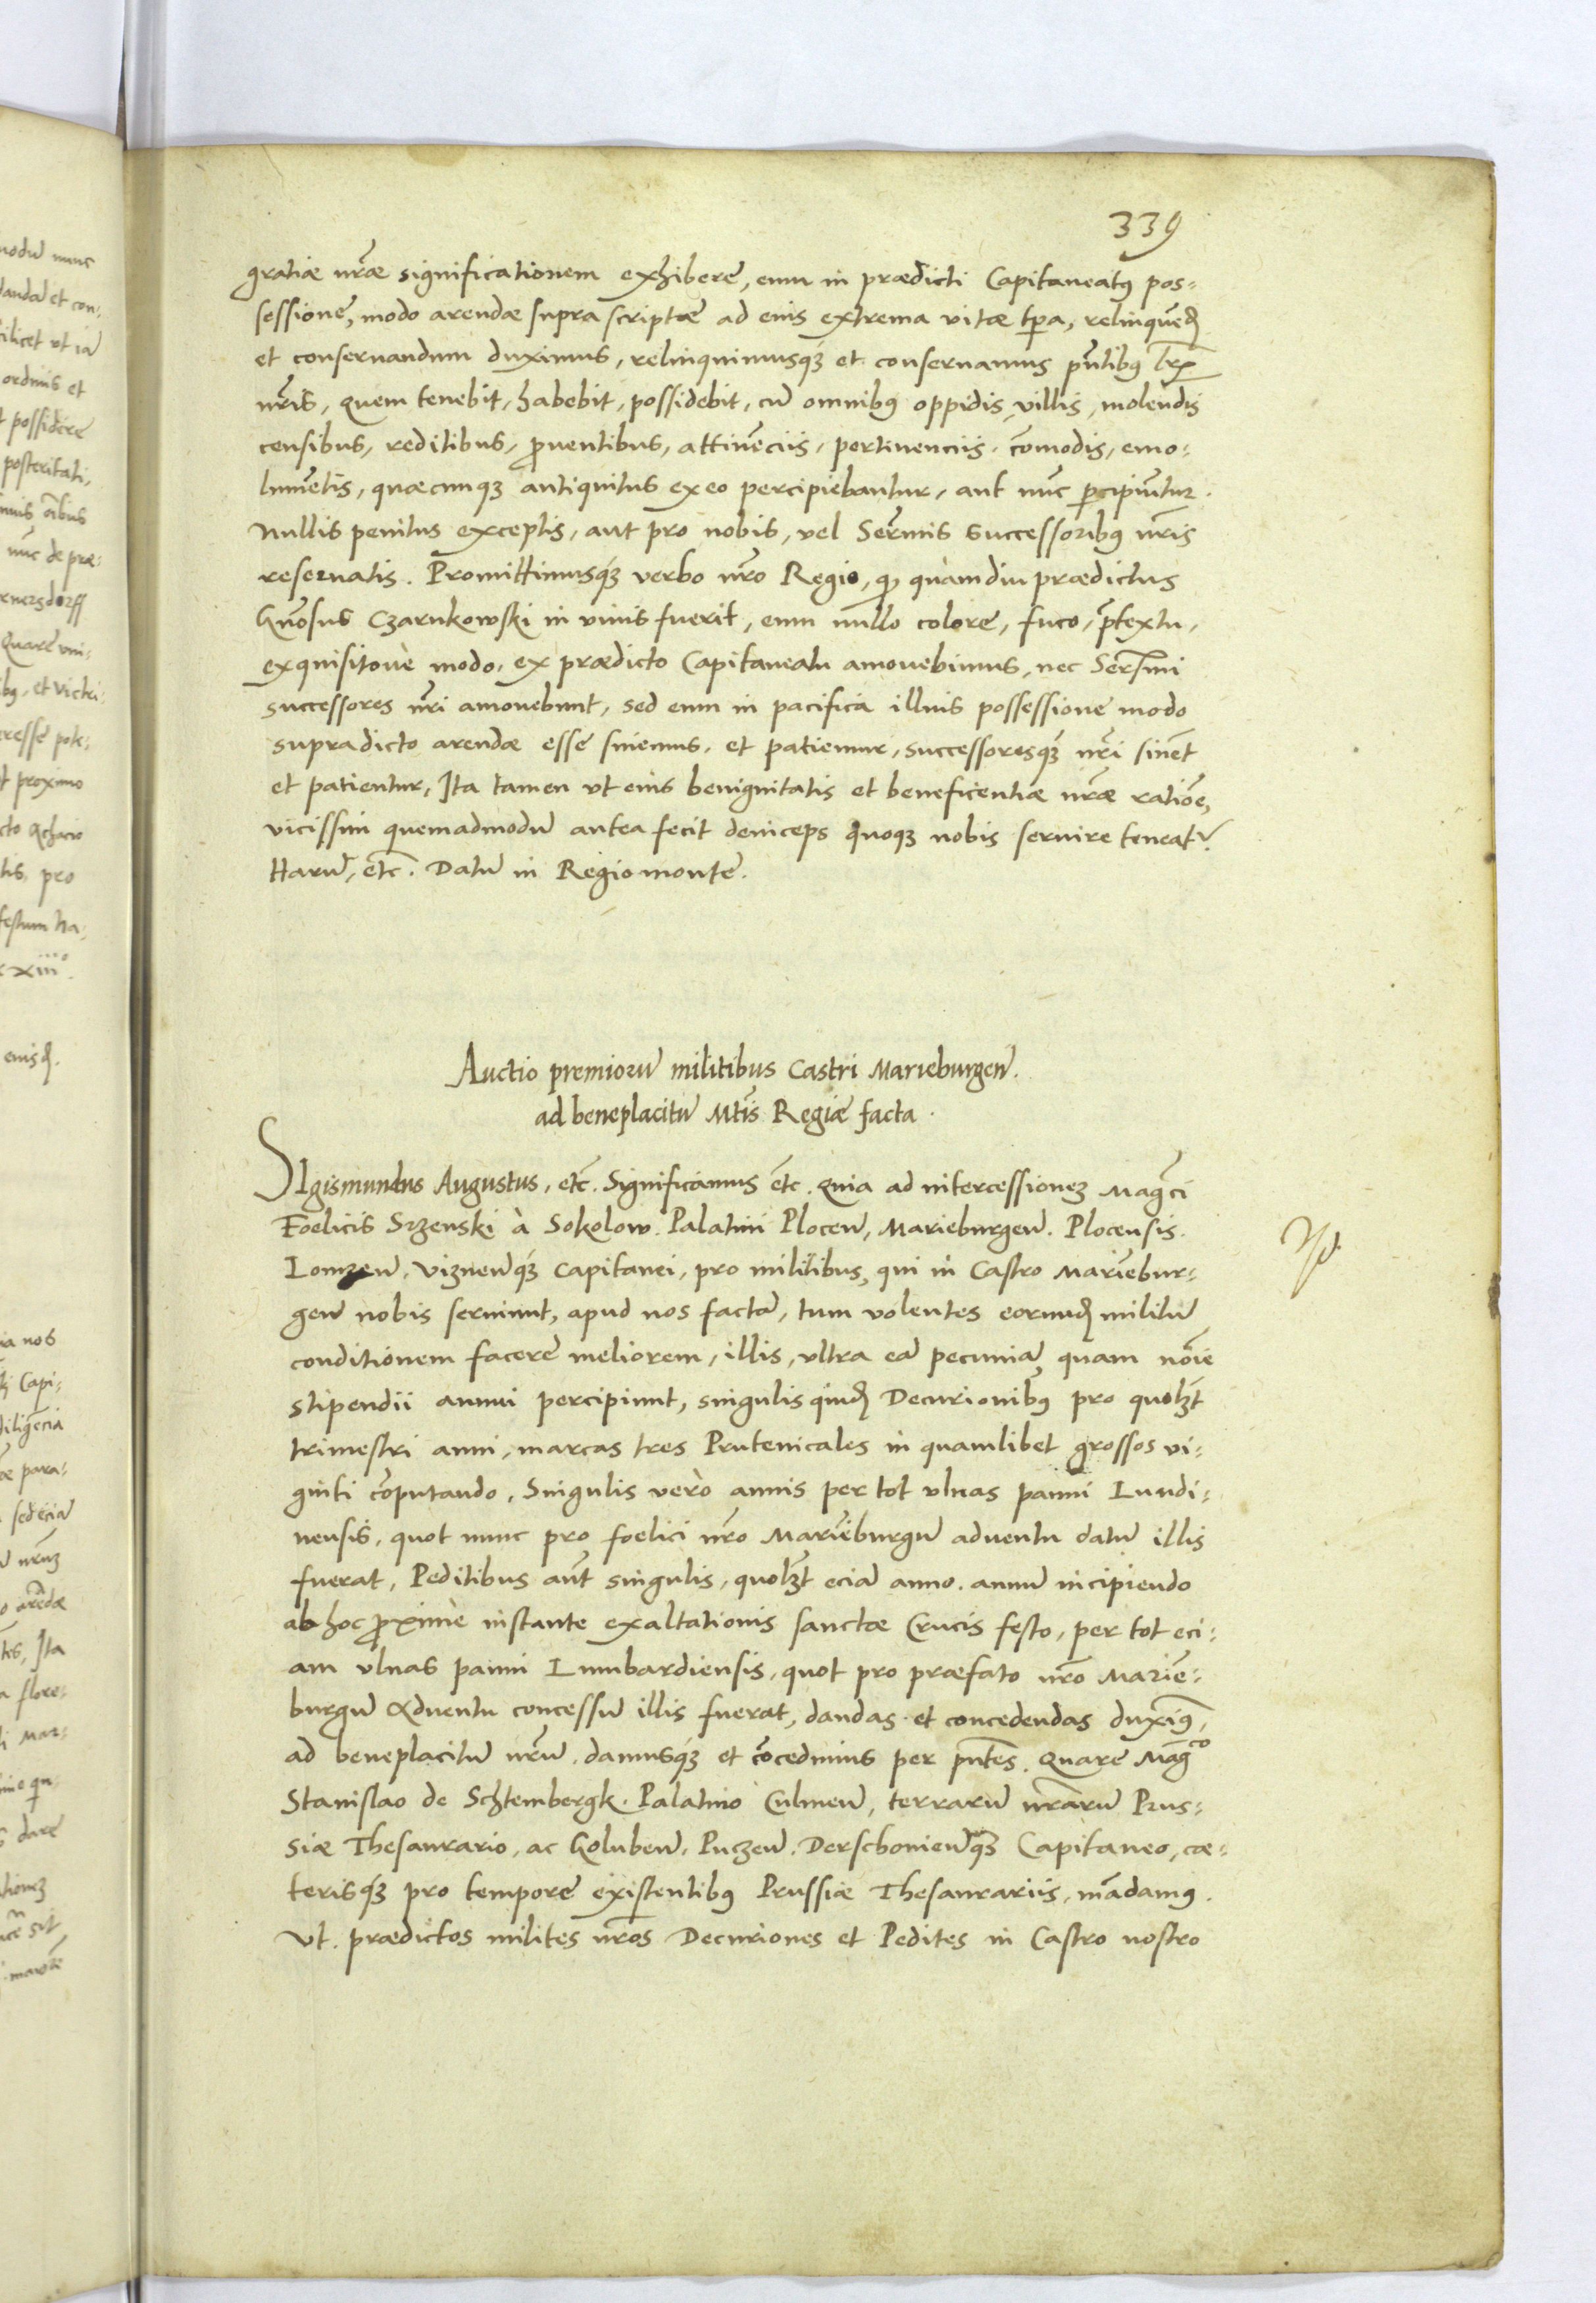 339
gratiæ nr̃æ significationem exhibere, eum in prædicti Capitaneatꝰ pos-
sessione, modo arendæ supra scriptæ ad eius extrema vitæ tpa, relinquẽd
et conseruandum duximus, relinquimusqꝫ et conseruamus pñtibꝰ lr̃
nr̃is, quem tenebit, habebit, possidebit, cũ omnibꝰ oppidis, villis, molendis
censibus, reditibus, ꝓuentibus, attinẽciis, pertinenciis, cõmodis, emo-
lumẽtis, quæcunqꝫ antiquitus ex eo percipiebantur, aut nũc ꝑcipiũtur.
Nullis penitus exceptis, aut pro nobis, vel Serm̃is successoribꝰ nr̃is
reseruatis. Promittimusqꝫ verbo nr̃o Regio, qꝫ quamdiu prædictus
Gñosus Czarnkowski in viuis fuerit, eum nullo colore, fuco, p̃textu,
exquisitoue modo, ex prædicto Capitaneatu amouebimus, nec Serm̃i
successores nr̃i amouebunt, sed eum in pacifica illius possessione modo
supradicto arendæ esse sinemus, et patiemur, successoresqꝫ nr̃i sinẽt
et patientur, Ita tamen vt eius benignitatis et beneficentiæ nr̃æ ratiõe,
vicissim quemadmodũ antea fecit deinceps quoqꝫ nobis seruire teneatr.
Harũ, etc̃. Datũ in Regiomonte.
Auctio premiorũ militibus Castri Marieburgeñ.
ad beneplacitũ Mt̃is Regiæ facta.
SIgismundus Augustus, etc̃. Significamus etc̃. Quia ad intercessionẽ Mag̃ci
Foelicis Srzenski à Sokolow. Palatini Ploceñ, Marieburgeñ. Plocensis.
Lomzeñ. Vizneñqꝫ Capitanei, pro militibus, qui in Castro Mariẽbur-
geñ nobis seruiunt, apud nos factã, tum volentes eorundẽ militũ
conditionem facere meliorem, illis, vltra eã pecuniã quam nõie
stipendii annui percipiunt, singulis quidẽ Decurionibꝰ pro quolꝫt
trimestri anni, marcas tres Prutenicales in quamlibet grossos vi-
ginti cõputando. Singulis verò annis per tot vlnas panni Lundi-
nensis, quot nunc pro foelici nr̃o Mariẽburgũ aduentu datũ illis
fuerat, Peditibus aũt singulis, quolꝫt eciã anno. annũ incipiendo
ab hoc ꝓxime instante exaltationis sanctæ Crucis festo, per tot eci-
am vlnas panni Lumbardiensis, quot pro præfato nr̃o Mariẽ-
burgũ Aduentu concessũ illis fuerat, dandas et concedendas duximꝰ,
ad beneplacitũ nr̃um. damusqꝫ et cõcedimus per pñtes. Quare Mag̃co
Stanislao de Schtembergk. Palatino Culmeñ, terrarũ nr̃arum Prus-
siæ Thesaurario, ac Golubeñ. Puczeñ. Derschouieñqꝫ Capitaneo, cæ-
terisqꝫ pro tempore existentibꝰ Prussiæ Thesaurariis, mãdamꝰ.
Vt. prædictos milites nr̃os Decuriones et Pedites in Castro nostro